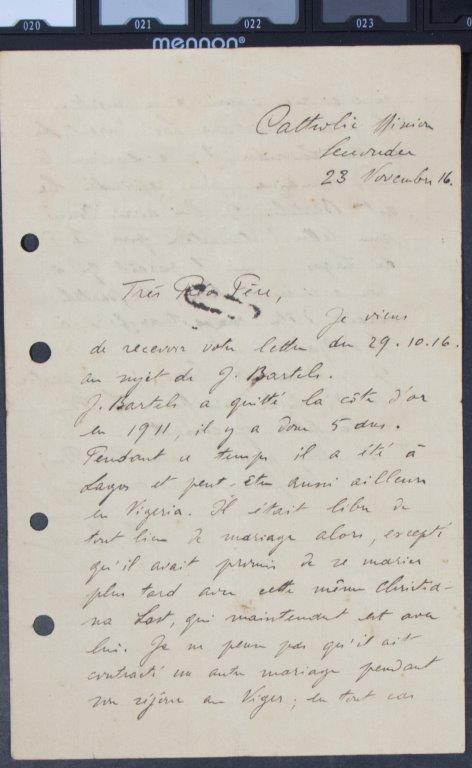 020 021 022 023
mennon®
Catholic Mission
Secondee
23 Novembre 16.
Très Rév Père,
Je viens
de recevoir votre lettre du 29.10.16.
au sujet de J. Bartels.
J. Bartels a quitté la côte d'or
en 1911, il y a donc 5 ans.
Pendant ce temps il a été à
Lagos et peut-être aussi ailleurs
en Nigeria. Il était libre de
tout lien de mariage alors, excepté
qu'il avait promis de se marier
plus tard avec cette même Christia-
na Last, qui maintenant est avec
lui. Je ne pense pas qu'il ait
contracté un autre mariage pendant
son séjour au Niger; en tout cas